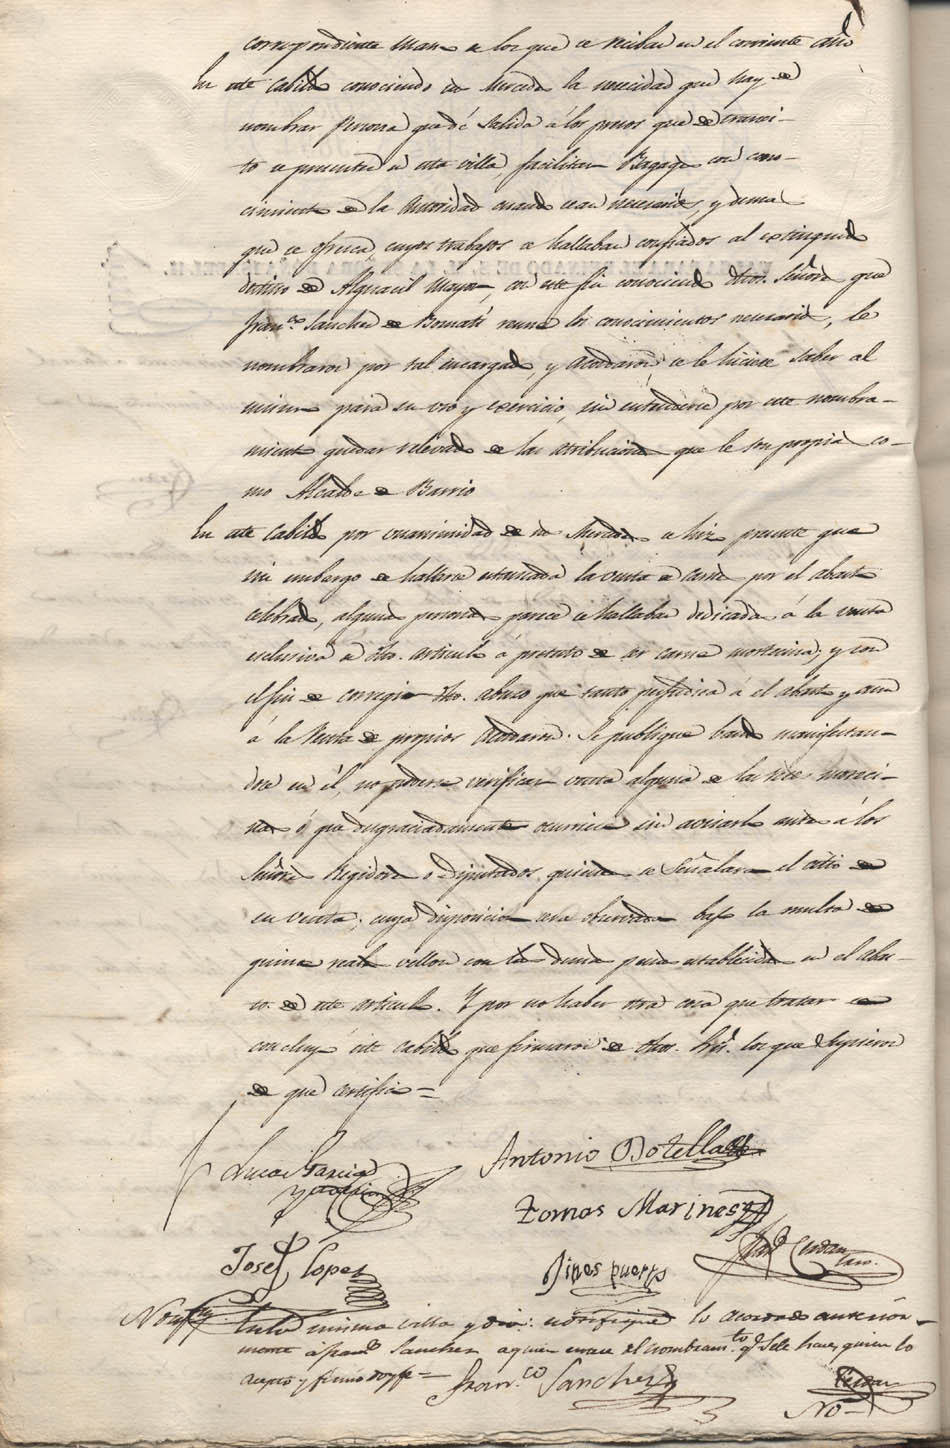 correspondiente a los que se reciban en el corriente año
En este Cabildo conociendo su Mercedes la necesidad que hay de
nombrar Persona que dé salida á los presos que de transi-
to se presenten en esta villa, facilitar Bagages con cono-
cimiento de la Autoridad cuando sean necesarios, y demas
que se ofrezca cuyos trabajos se hallaban confiados al extinguido
destino de Alguacil Mayor, con este fin conociendo dhos. Señores que
Franco. Sanchez de Bomatí reune los conocimientos necesarios, le
nombraron por tal encargado, y acordaron se le hiciese saber al
mismo para su uso y exercicio, sin entenderse por este nombra-
miento quedar relevado de las atribuciones que le son propias co-
mo Alcalde de Barrio
En este Cabildo por unanimidad de sus Mercedes se hizo presente que
sin embargo de hallarse estancada la venta de carne por el abasto
celebrado, algunas personas parece se hallaban dedicadas á la venta
esclusiva de dho. articulo á pretesto de ser carne mortecina; y con
el fin de corregir dho. abuso que tanto perjudica á el abasto y aun
á la Renta de propios Acordaron: Se publique bando manifestan-
dose en él, no poderse verificar venta alguna de las reses morteci-
nas ó que desgraciadamente ocurriese sin avisarlo antes á los
Señores Regidores ó Diputados quienes se Señalara el citio de
su venta; cuya disposicion sera observada bajo la multa de
quince reales vellon con las demas penas establecidas en el abas-
to de este articulo. Y por no haber otra cosa que tratar se
concluyó este Cabildo que firmaron de dhos. Sres. los que supieron
de que certifico =
Lucas Garcia
Antonio Botella
Tomas Marines
Josef Lopez
Gines Puerto
Notifn. En la misma villa y dia: notifique lo acordado anterior-
mente á Franco. Sanchez aquien era el nombramto. q. se le hace, quien lo
acepto y firmó doy fe =
Franco. Sanchez